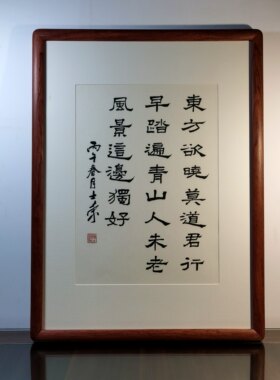 東方欲曉莫道君行
早踏遍青山人未老
風景這邊獨好
丙午春月士